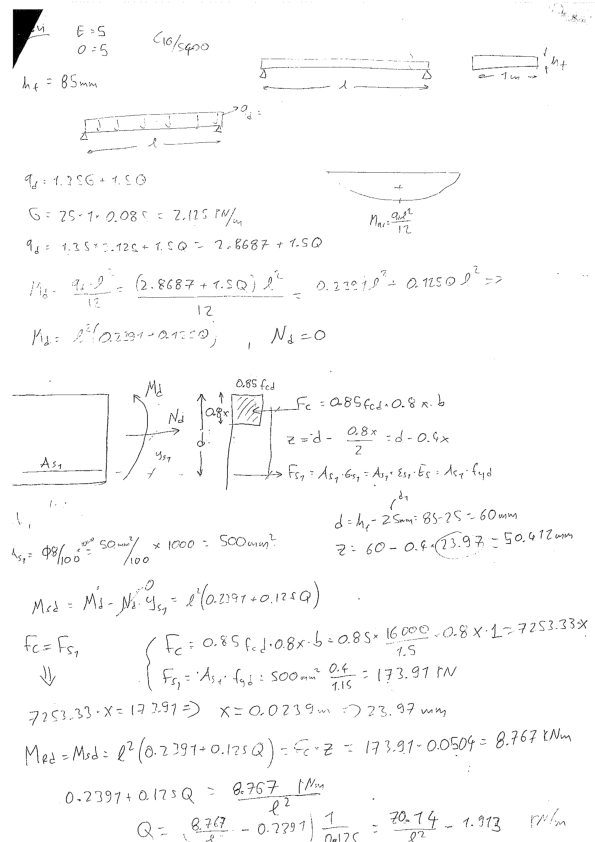 E=5
O=5
C16/S400
h_f = 85mm
l
1m
h_f
q_d:
l
q_d = 1.35G + 1.5Q
G = 25·1·0.085 = 2.125 kN/m
q_d = 1.35*2.125 + 1.5Q = 2.8687 + 1.5Q
+
M_d = q_d·l² / 12 = (2.8687 + 1.5Q) l² / 12 = 0.2391 l² + 0.125Q l² =>
M_d = l²(0.2391+0.125Q), N_d = 0
M_d
N_d
y_s1
A_s1
0.8x
d
0.85 f_cd
F_c = 0.85 f_cd · 0.8x · b
z = d - 0.8x/2 = d - 0.4x
F_s1 = A_s1·σ_s1 = A_s1·ε_s1·E_s = A_s1·f_yd
d_1
d = h_f - 25mm = 85-25 = 60mm
A_s1 = Φ8/100 = 50mm²/100 × 1000 = 500mm²
z = 60 - 0.4·23.97 = 50.412mm
M_sd = M_d - N_d·y_s1 = l²(0.2391+0.125Q)
0
F_c = F_s1
⇓
F_c = 0.85 f_cd·0.8x·b = 0.85 * 16000/1.5 · 0.8 × 1 = 7253.33·x
F_s1 = A_s1·f_yd = 500mm² 0.4/1.15 = 173.91 kN
7253.33·x = 173.91 => x = 0.0239m => 23.97 mm
M_Rd = M_sd = l²(0.2391+0.125Q) = F_c·z = 173.91·0.0504 = 8.767 kNm
0.2391 + 0.125Q = 8.767 kNm / l²
Q = (8.767/l² - 0.2391) 1/0.125 = 70.14/l² - 1.913 kN/m